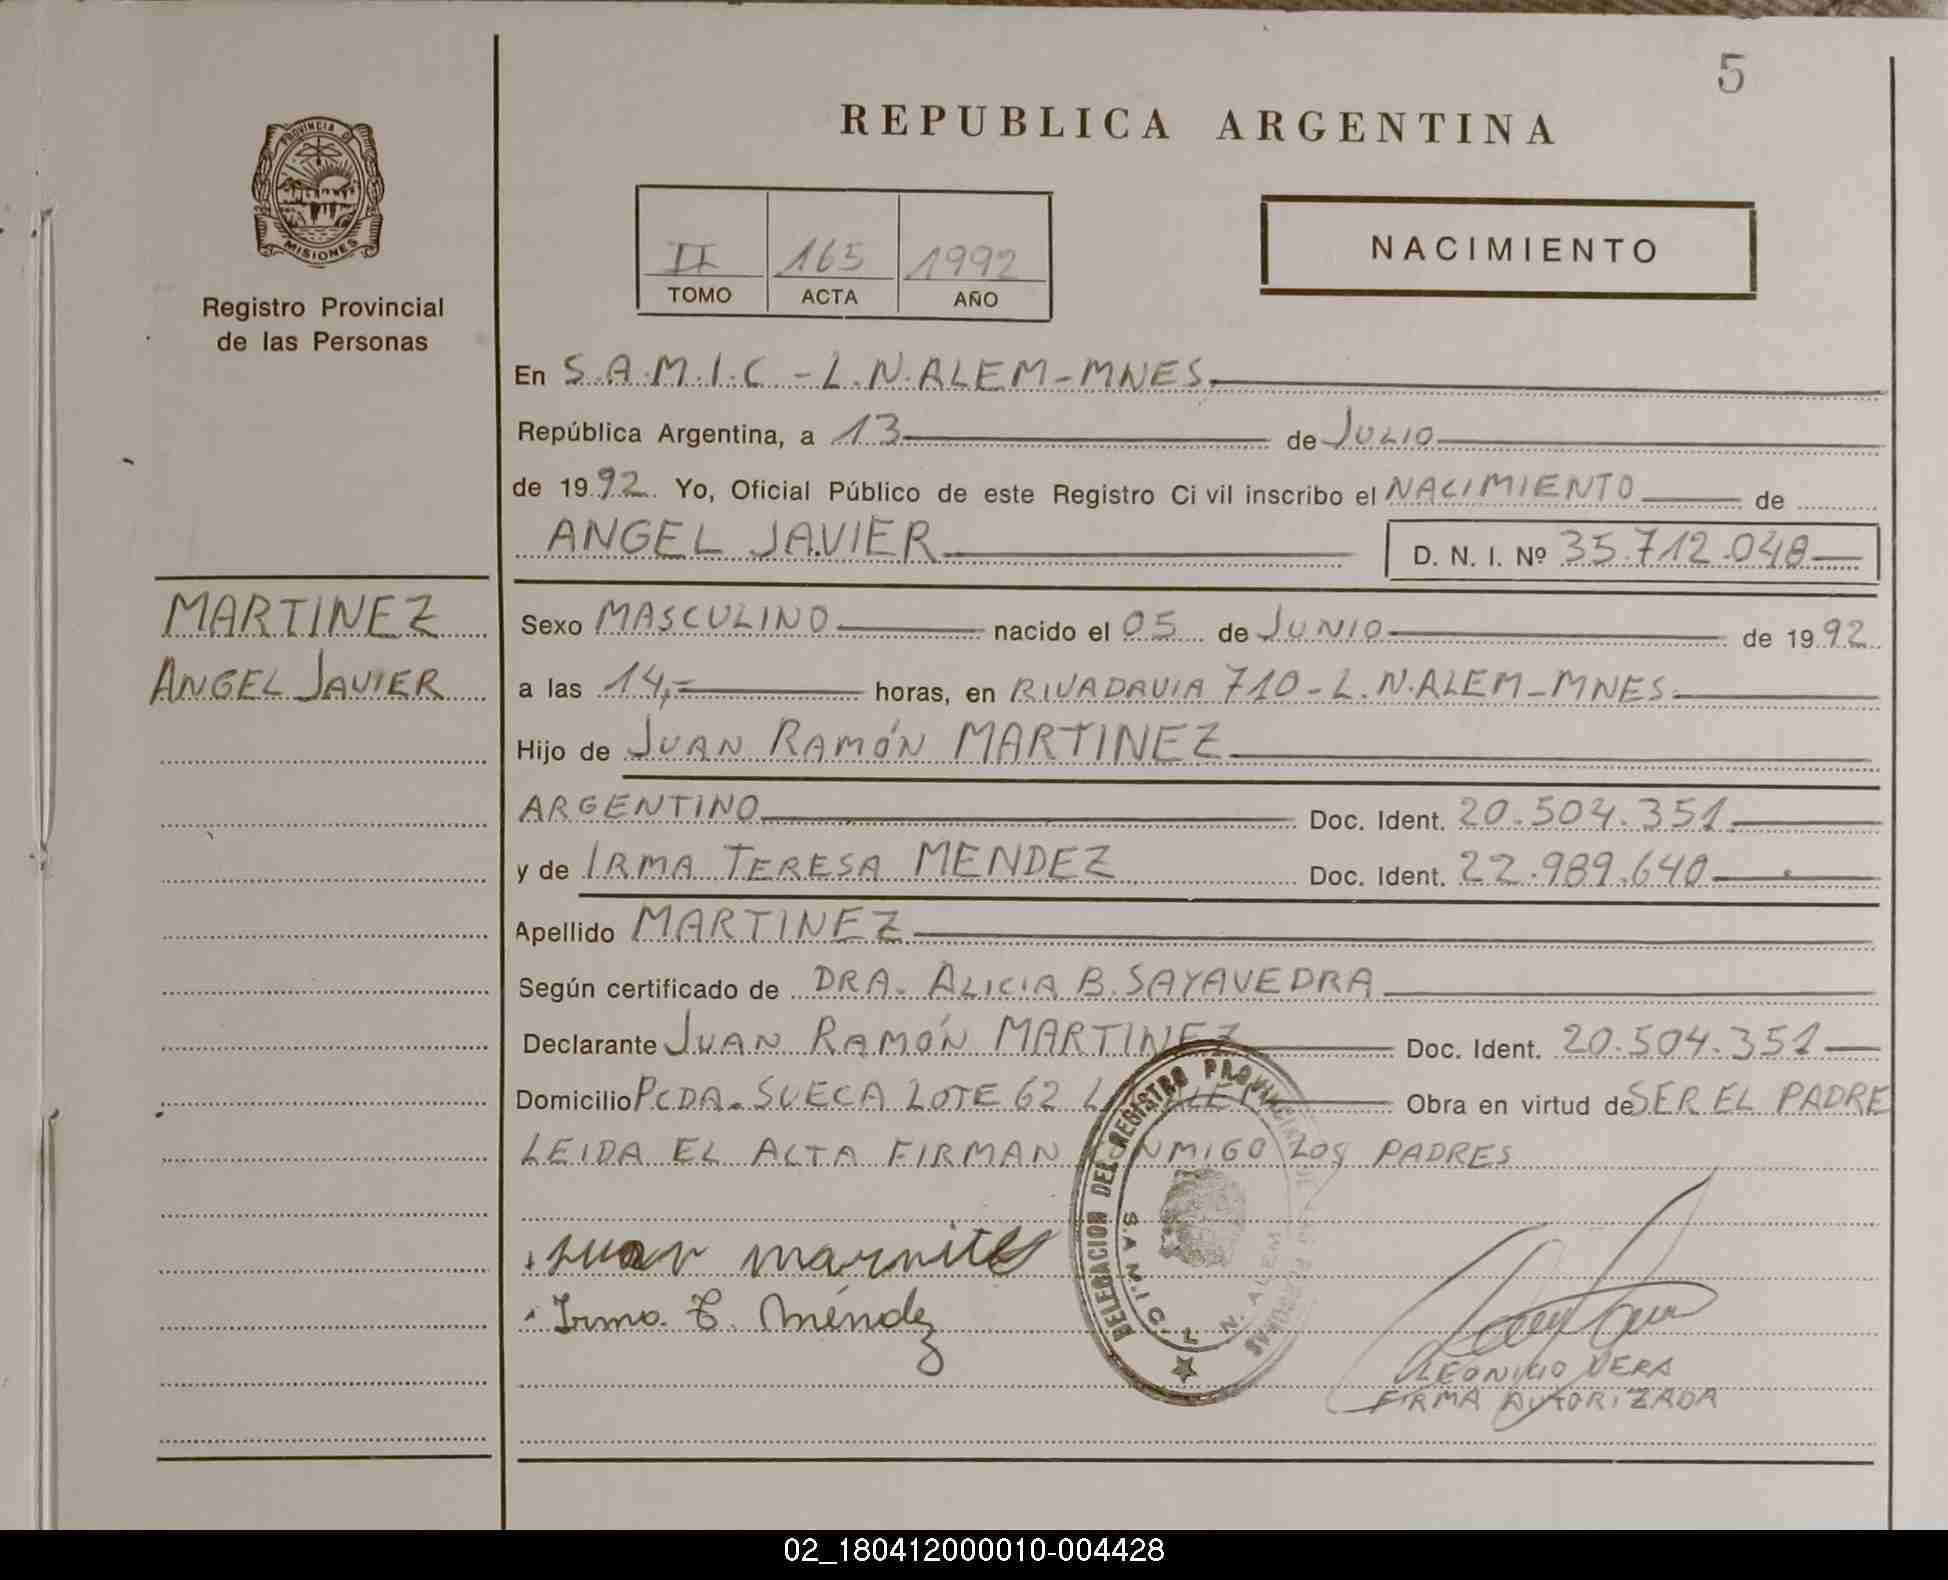 5
REPUBLICA ARGENTINA
PROVINCIA D MISIONES
Registro Provincial
de las Personas
II 165 1992
TOMO ACTA AÑO
NACIMIENTO
En S.A.M.I.C - L.N.ALEM-MNES.
República Argentina, a 13 de JULIO
de 1992. Yo, Oficial Público de este Registro Ci vil inscribo el NACIMIENTO de
ANGEL JAVIER D. N. I. Nº 35.712.048
MARTINEZ
ANGEL JAVIER
Sexo MASCULINO nacido el 05 de JUNIO de 1992
a las 14,= horas, en RIVADAVIA 710-L.N.ALEM-MNES.
Hijo de JUAN RAMÓN MARTINEZ
ARGENTINO Doc. Ident. 20.504.351
y de IRMA TERESA MENDEZ Doc. Ident. 22.989.640
Apellido MARTINEZ
Según certificado de DRA. ALICIA B. SAYAVEDRA
Declarante JUAN RAMÓN MARTINEZ Doc. Ident. 20.504.351
Domicilio PCDA. SUECA LOTE 62 L ALEM Obra en virtud de SER EL PADRE
LEIDA EL ACTA FIRMAN CONMIGO LOS PADRES
DELEGACION DEL REGISTRO PROVINCIAL DE LAS PERSONAS
L. N. ALEM
Juan marnites
Irma T. Méndez
LEONICIO VERA
FIRMA AUTORIZADA
02_180412000010-004428